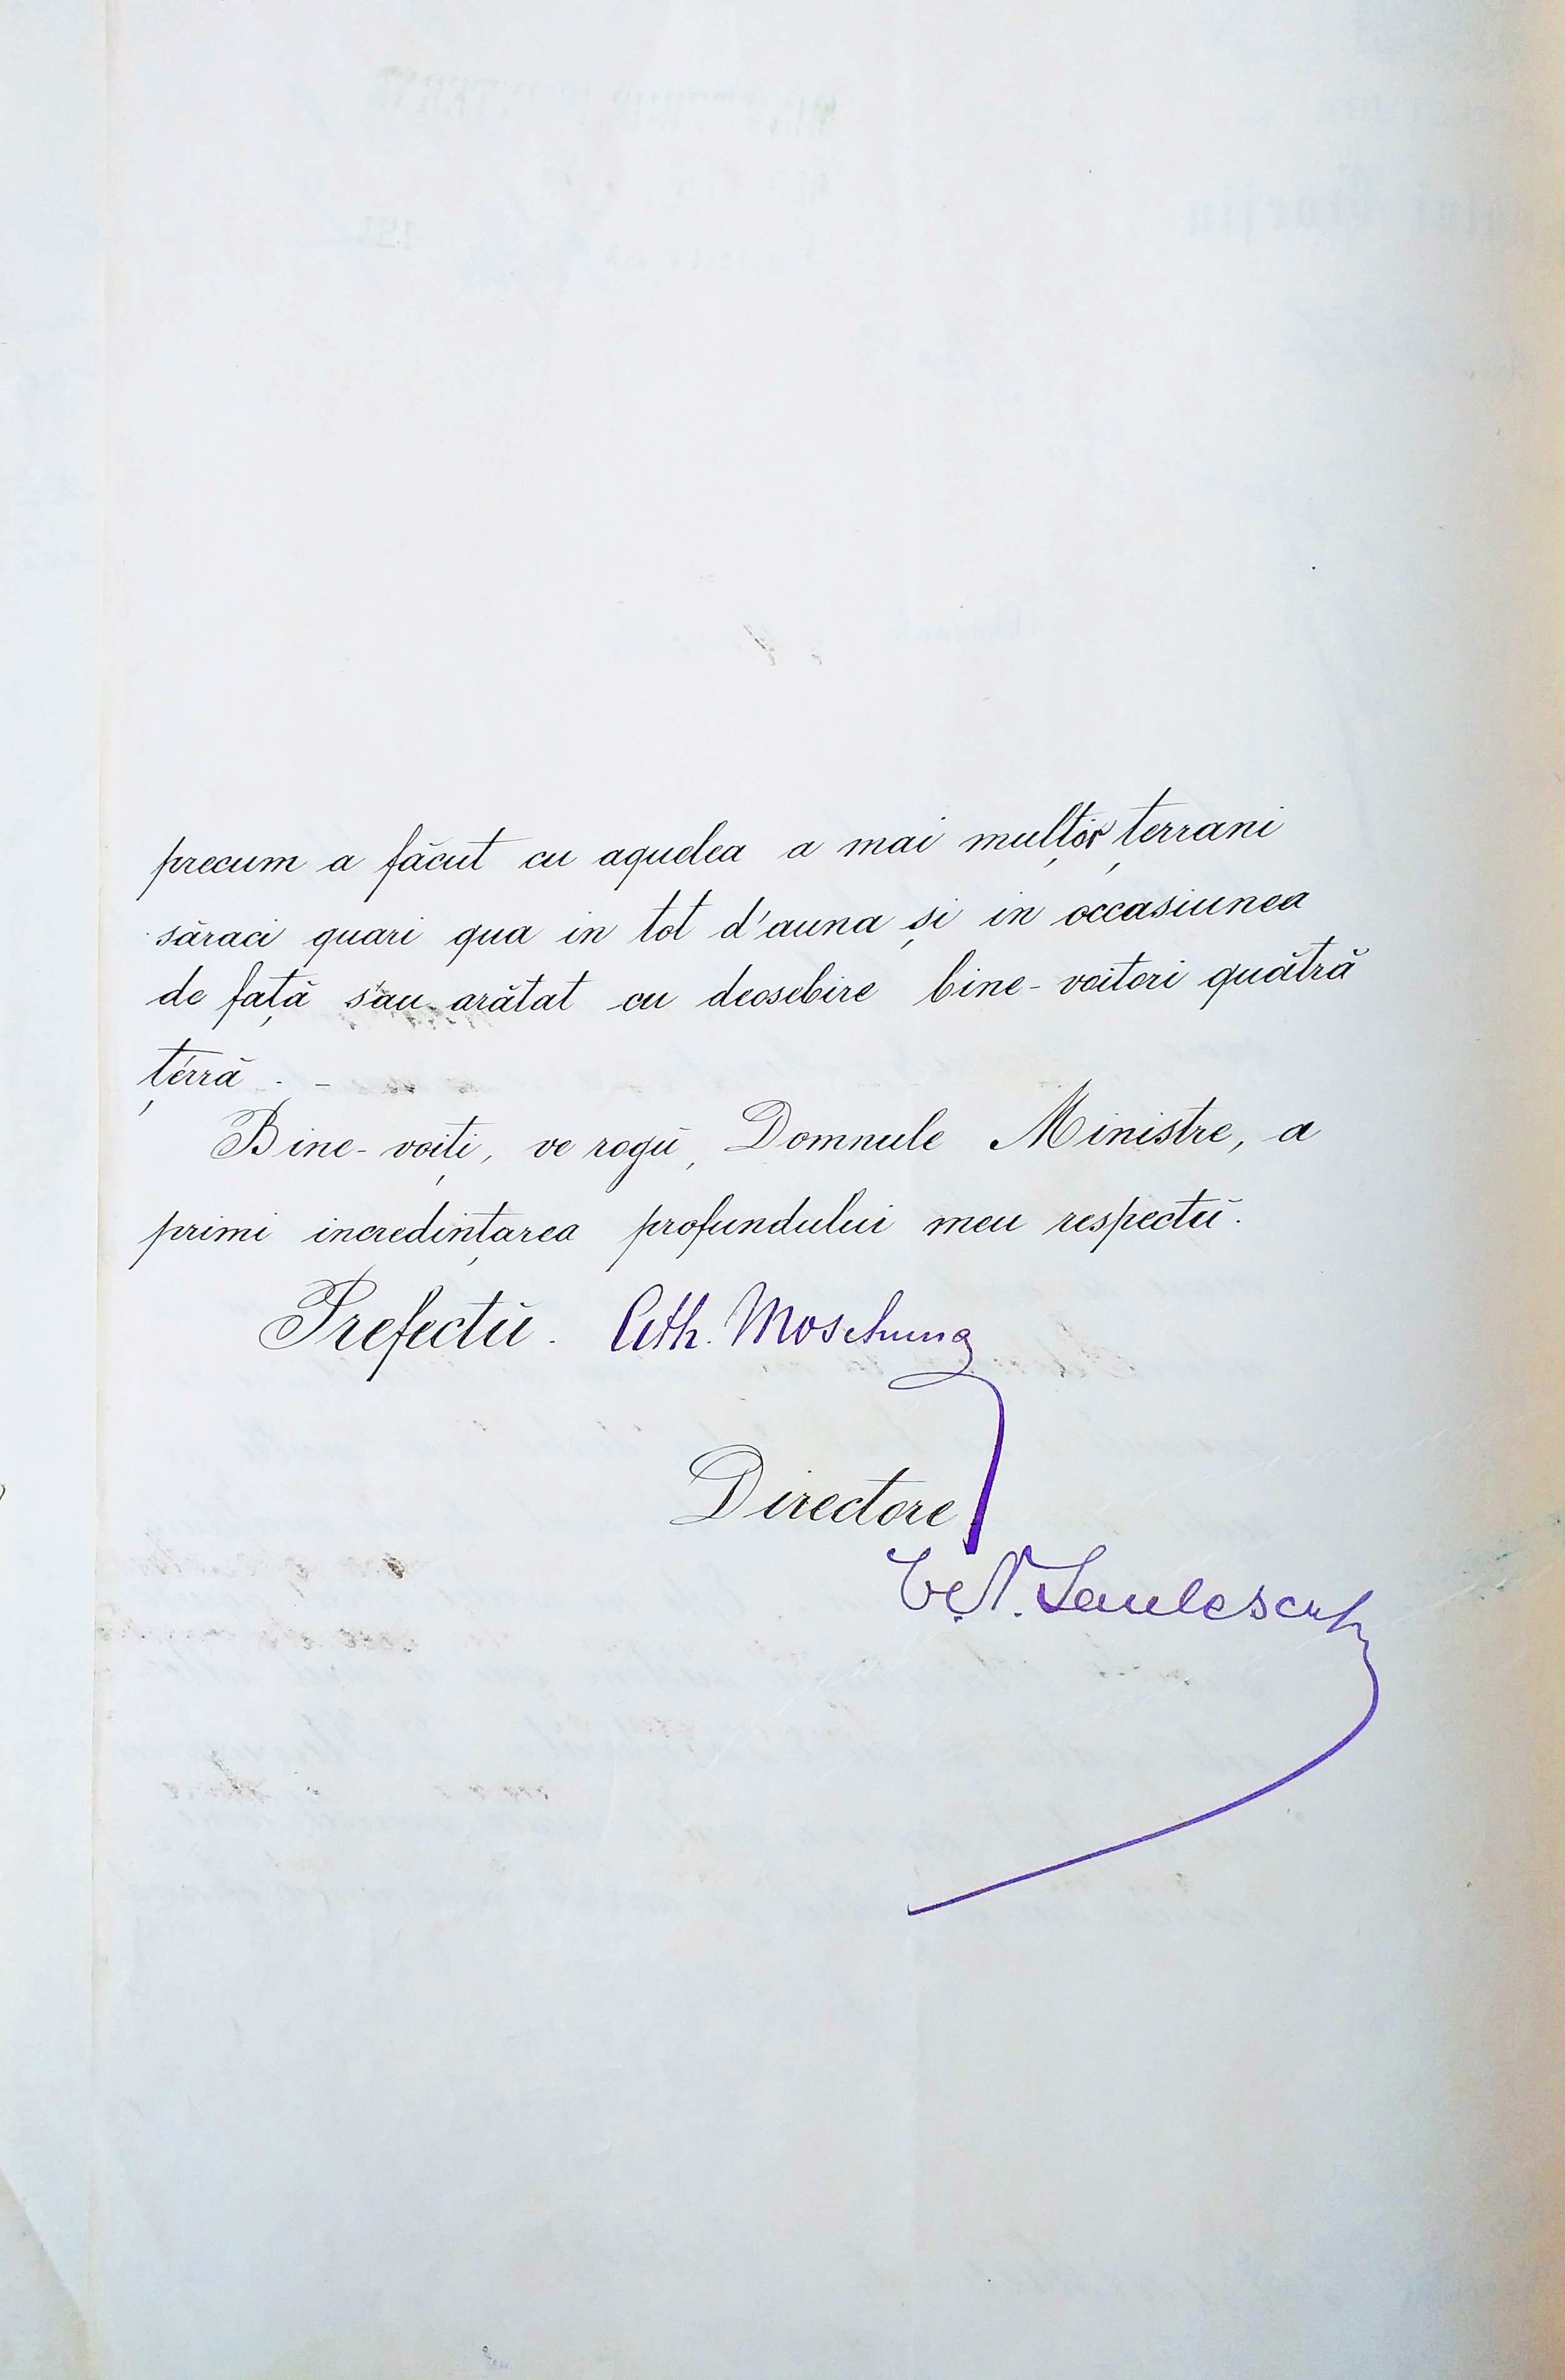 precum a făcut cu aquelea a mai mulțor țerrani
săraci quari qua in tot d'auna și in occasiunea
de față s'au arătat cu deosebire bine-voitori quătră
țérră. -
Bine-voiți, ve rogŭ, Domnule Ministre, a
primi incredințarea profundului meu respectŭ.
Prefectŭ. Ath. Moschuna
Directore
N. Saulescu